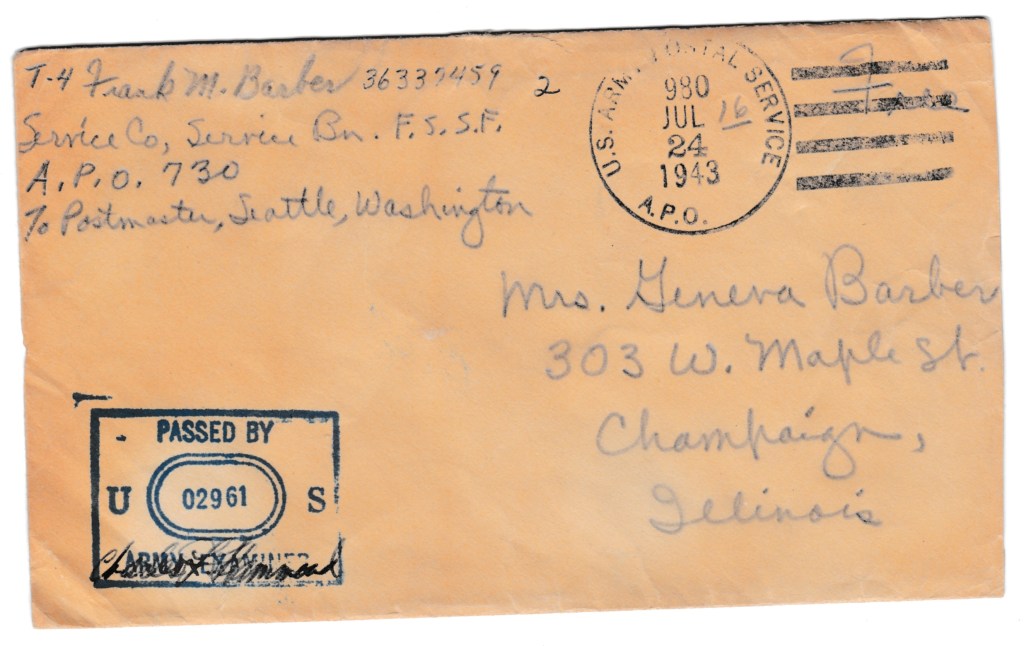 T-4 Frank M. Barber 36337459 2
Service Co, Service Bn. F.S.S.F.
A.P.O. 730
℅ Postmaster, Seattle, Washington
U.S. ARMY POSTAL SERVICE
980
JUL 16
24
1943
A.P.O.
Free
Mrs. Geneva Barber
303 W. Maple St.
Champaign,
Illinois
PASSED BY
U 02961 S
ARMY EXAMINER